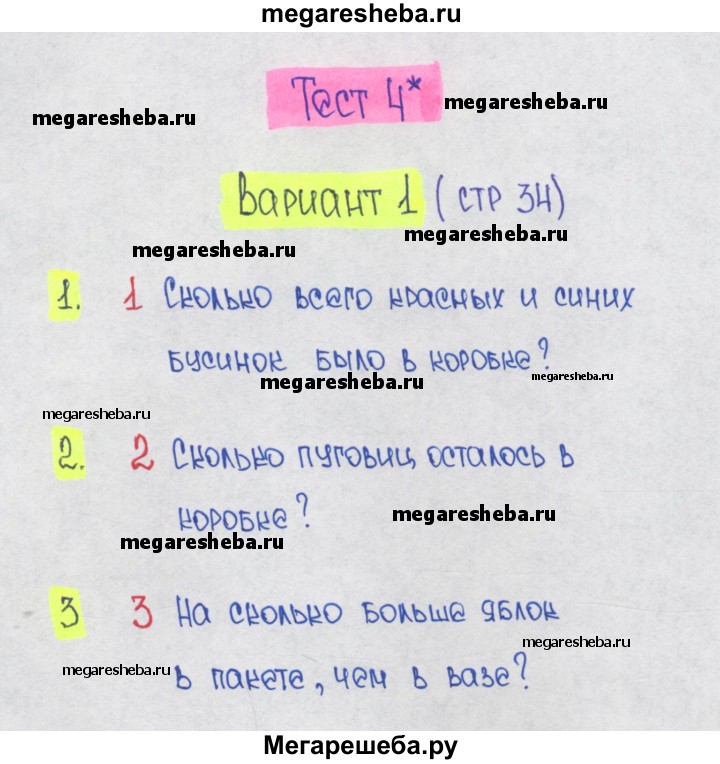 megaresheba.ru
Тест 4*
megaresheba.ru
megaresheba.ru
Вариант 1 (стр 34)
megaresheba.ru
megaresheba.ru
1. 1 Сколько всего красных и синих
бусинок было в коробке?
megaresheba.ru
megaresheba.ru
megaresheba.ru
2. 2 Сколько пуговиц осталось в
коробке?
megaresheba.ru
megaresheba.ru
3 3 На сколько больше яблок
megaresheba.ru
в пакете, чем в вазе?
megaresheba.ru
Мегарешеба.ру